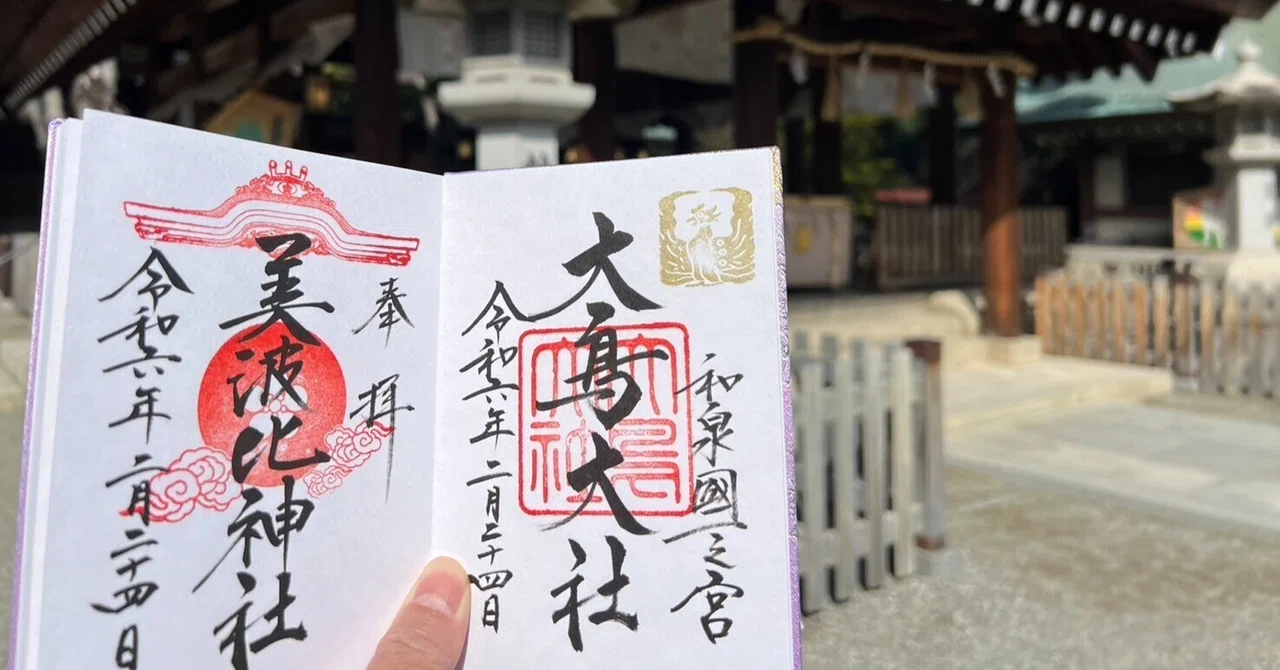 和泉國一之宮
大鳥大社
大鳥大社
令和六年 二月二十四日
奉拝
美波比神社
令和六年 二月二十四日